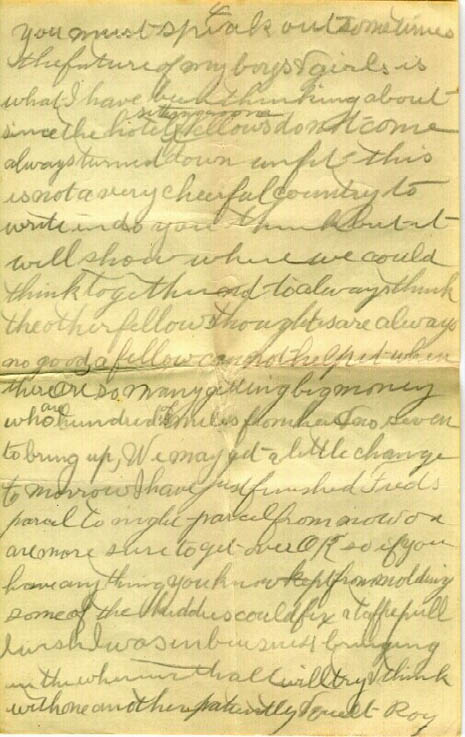 4
you must speak out sometimes
the future of my boys & girls is
what I have been thinking about
since the hotel fellows do not come
always turned down unfit this
is not a very cheerful country to
write in do you think but it
will show where we could
think together not to always think
the other fellows thoughts are always
no good, a fellow cannot help it when
there are so many getting big money
who are hundreds miles from here even
to bring up, We may get a little change
to morrow I have just finished Freds
parcel to night parcel from now on
are more sure to get over OK so if you
have any thing you know kept from molding
some of the buddies could fix a taffe pull
I wish I was in buisness bringing
in the wherewithall I will try & think
with one another patiently & quiet Roy